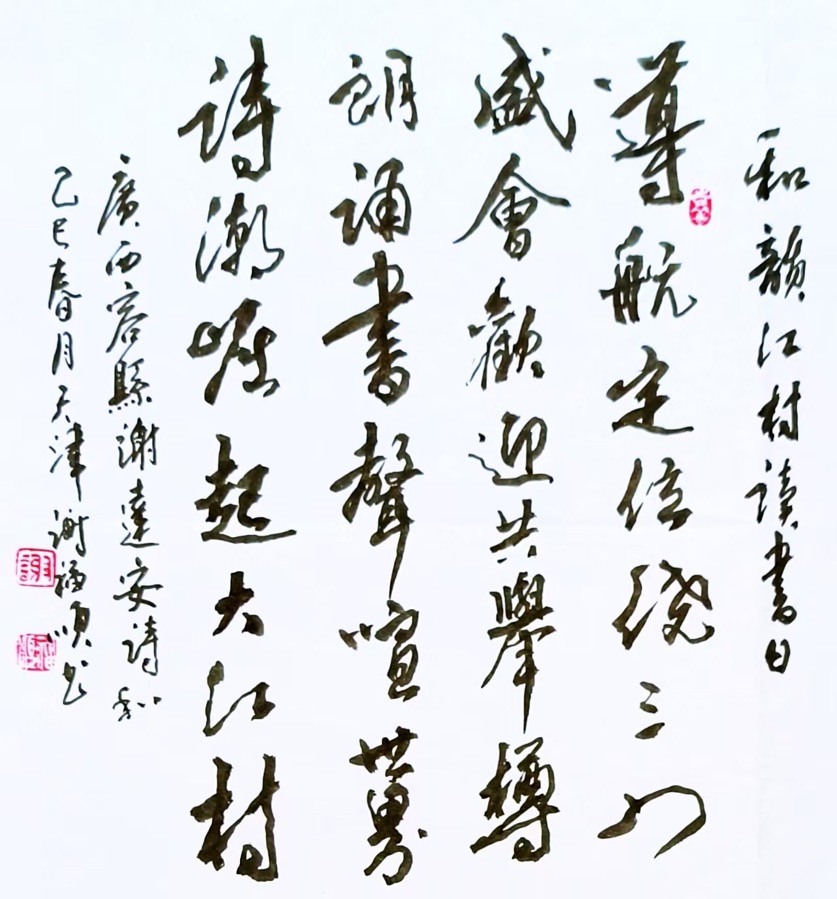 和韻江村读書日
導航定位绕三门
盛會歡迎共舉樽
朗誦書聲喧世界
詩潮崛起大江村
廣西容縣謝達安詩和
乙巳春月天津謝福順书
謝